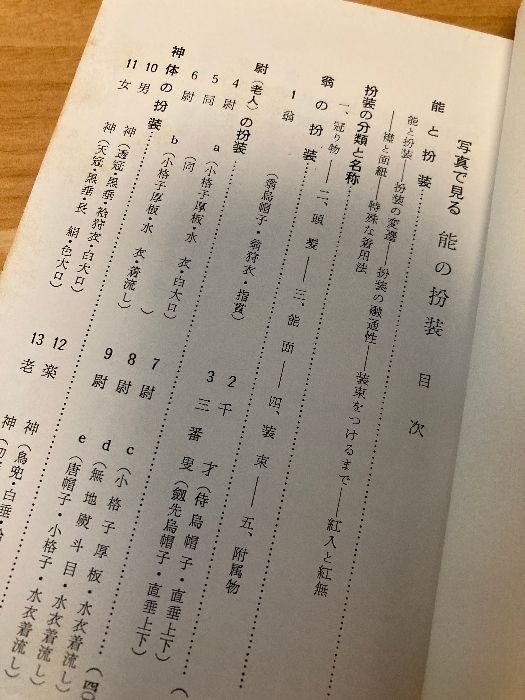 写真で見る 能の扮装 目次
能と扮装
能と扮装――扮装の変遷――扮装の融通性――装束をつけるまで――紅入と紅無
――襟と面紐――特殊な着用法
扮装の分類と名称
一、冠り物――二、頭髪――三、能面――四、装束――五、附属物
翁の扮装
1 翁 (翁烏帽子・翁狩衣・指貫)
2 千才 (侍烏帽子・直垂上下)
3 三番叟 (剱先烏帽子・直垂上下)
尉(老人)の扮装
4 尉 a (小格子厚板・水衣・白大口)
5 同 (同)
6 尉 b (小格子厚板・水衣・着流し)
7 尉 c (小格子厚板・水衣着流し)
8 尉 d (無地熨斗目・水衣着流し)
9 尉 e (唐帽子・小格子・水衣着流し)
(四〇
神体の扮装
10 男神 (透冠・黒垂・袷狩衣・白大口)
11 女神 (天冠・黒垂・長絹・色大口)
12 楽神 (鳥兜・白垂・
13 老神